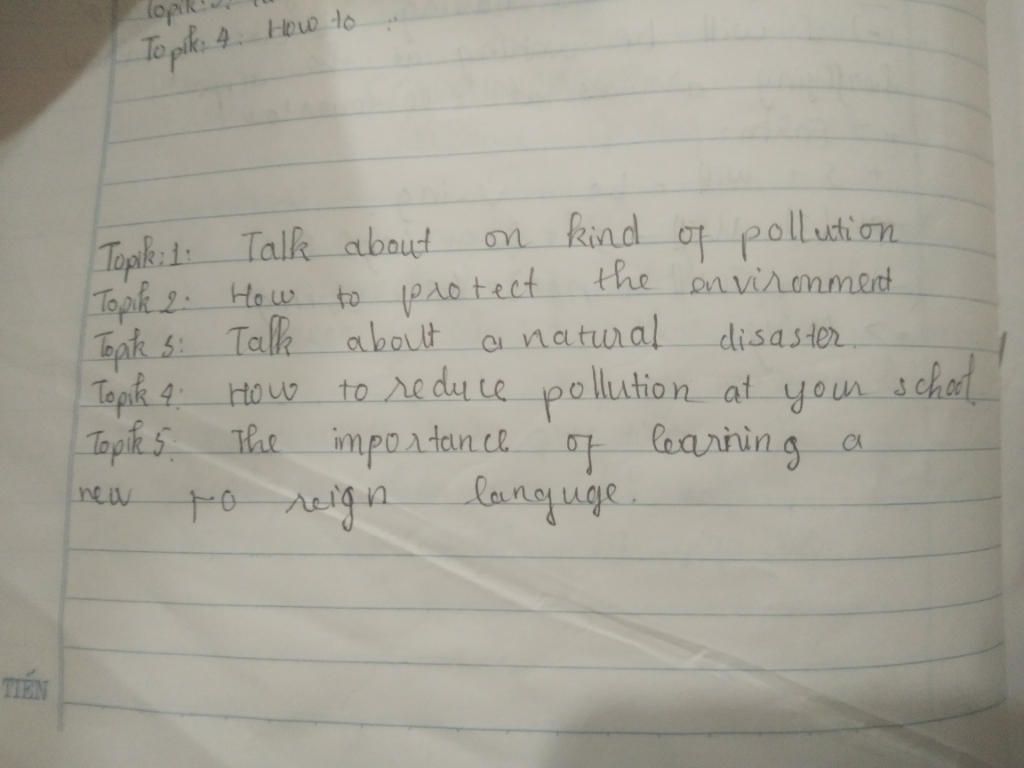 Topik:
Topik: 4: How to
Topik:1: Talk about on kind of pollution
Topik 2: How to protect the environment
Topik 3: Talk about a natural disaster.
Topik 4: How to reduce pollution at your school
Topik 5: The importance of learning a
new foreign languge.
TIẾN